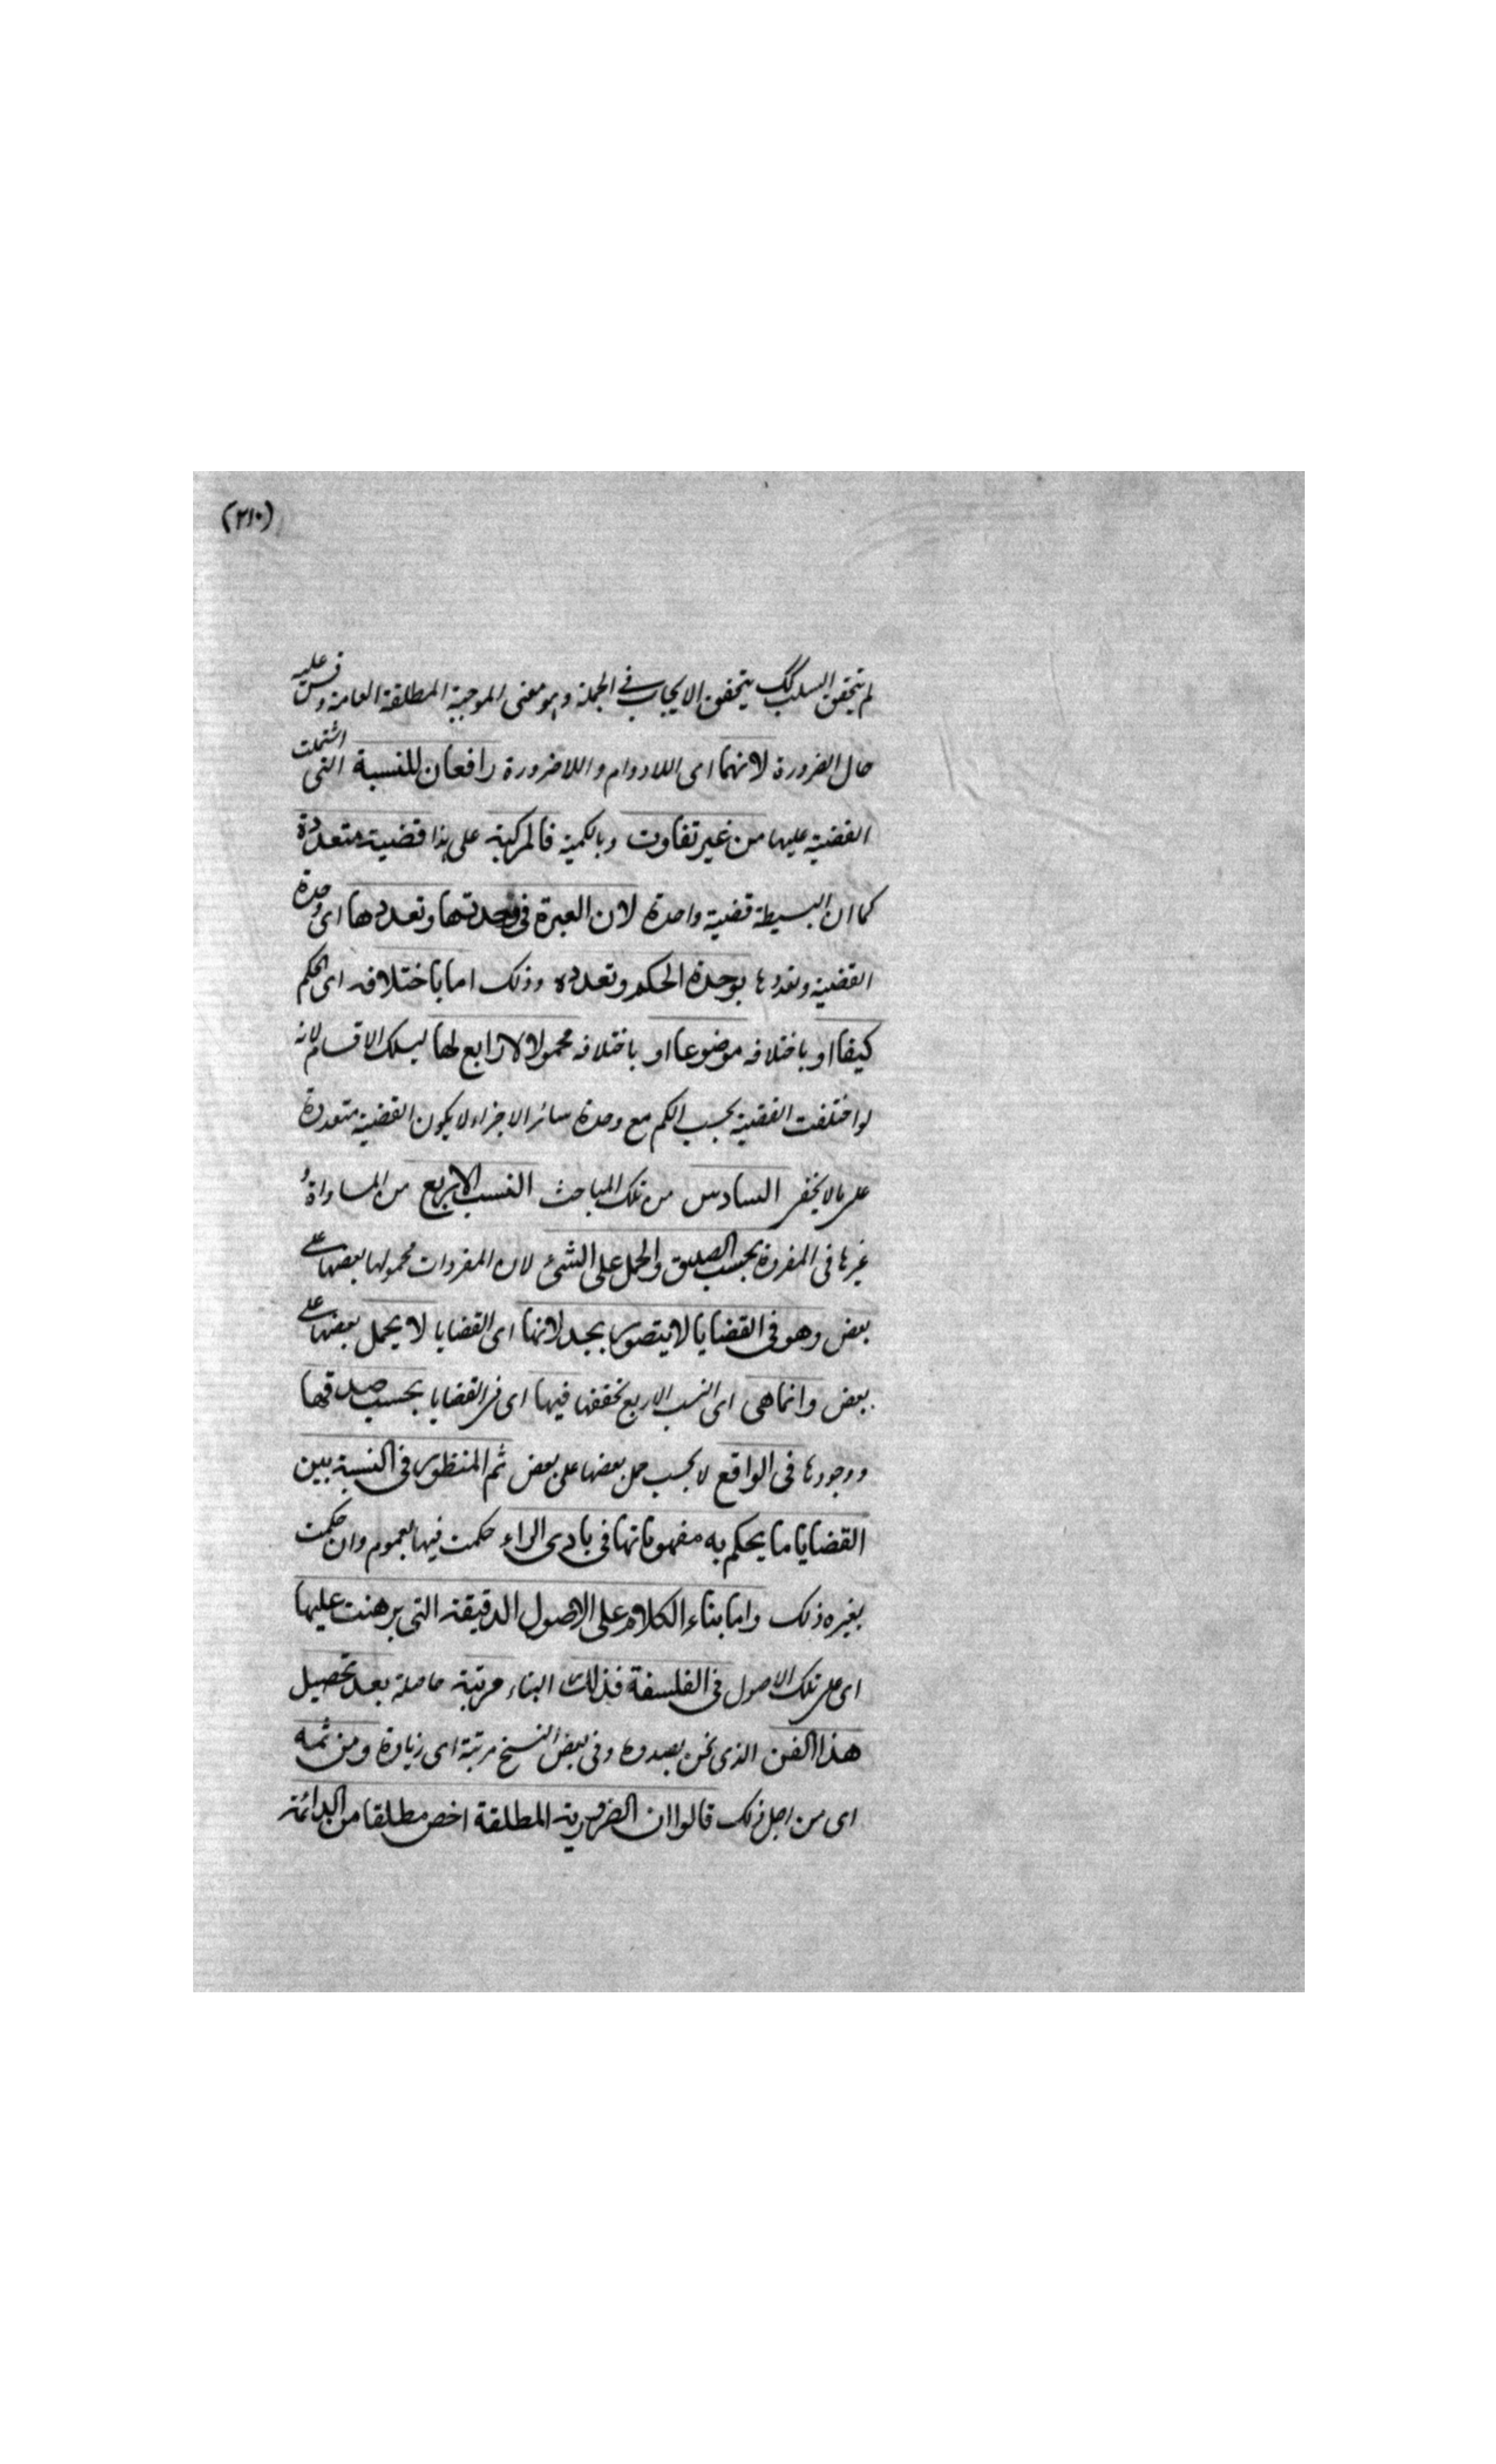 (٢١٠)
لم يتحقق السلب كك يتحقق الايجاب في الجملة وهو معنى الموجبة المطلقة العامة وقس عليه
حال الضرورة لانهما اى اللادوام و اللاضرورة رافعان للنسبة التى اشتملت
القضية عليها من غير تفاوت وبالكمية فالمركبة على هذا قضية متعددة
كما ان البسيطة قضية واحدة لان العبرة فى وحدتها وتعددها اى وحدة
القضية وتعددها بوحدة الحكم وتعدده وذلك اما باختلافه اى الحكم
كيفا او باختلافه موضوعا او باختلافه محمولا لا رابع لها لتلك الاقسام لانه
لو اختلفت القضية بحسب الكم مع وحدة سائر الاجزاء لا يكون القضية متعددة
على ما لا يخفى السادس من تلك المباحث النسب الاربع من المساواة و
غيرها فى المفردة بحسب الصدق والحمل على الشئ لان المفردات محمولها بعضها على
بعض وهو فى القضايا لا يتصور بجد لانها اى القضايا لا يحمل بعضها على
بعض وانما هى اى النسب الاربع تحققها فيها اى فى القضايا بحسب صدقها
ووجودها فى الواقع لا بحسب حمل بعضها على بعض ثم المنظور فى النسبة بين
القضايا ما يحكم به مفهوماتها فى بادى الراء حكمت فيها بعموم وان حكمت
بغيره ذلك واما بناء الكلام على الاصول الدقيقة التى برهنت عليها
اى على تلك الاصول فى الفلسفة فذلك البناء مرتبة حاصلة بعد تحصيل
هذا الفن الذى نحن بصدده وفى بعض النسخ مرتبة اى زيادة ومن ثمه
اى من اجل ذلك قالوا ان الضرورية المطلقة اخص مطلقا من الدائمة